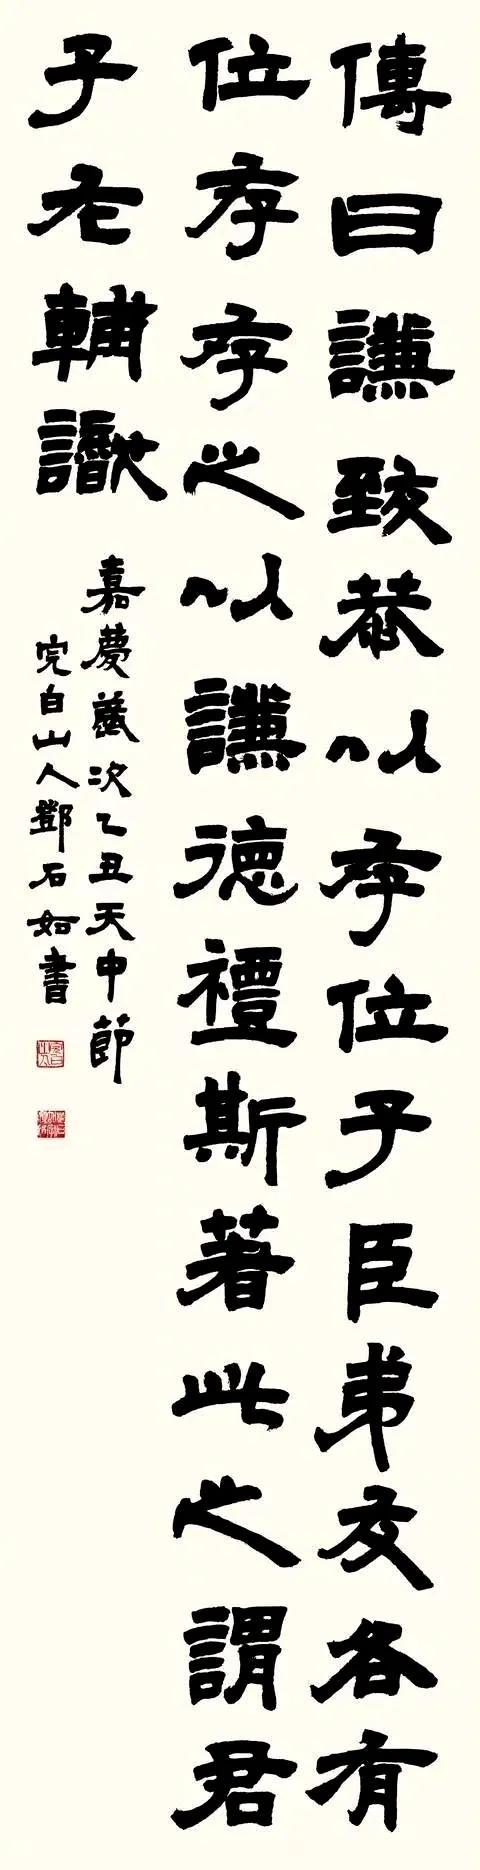 傳曰謙致恭以存位子臣弟友各有
位存存之以謙德禮斯著此之謂君
子左輔
嘉慶歲次乙丑天中節
完白山人鄧石如書